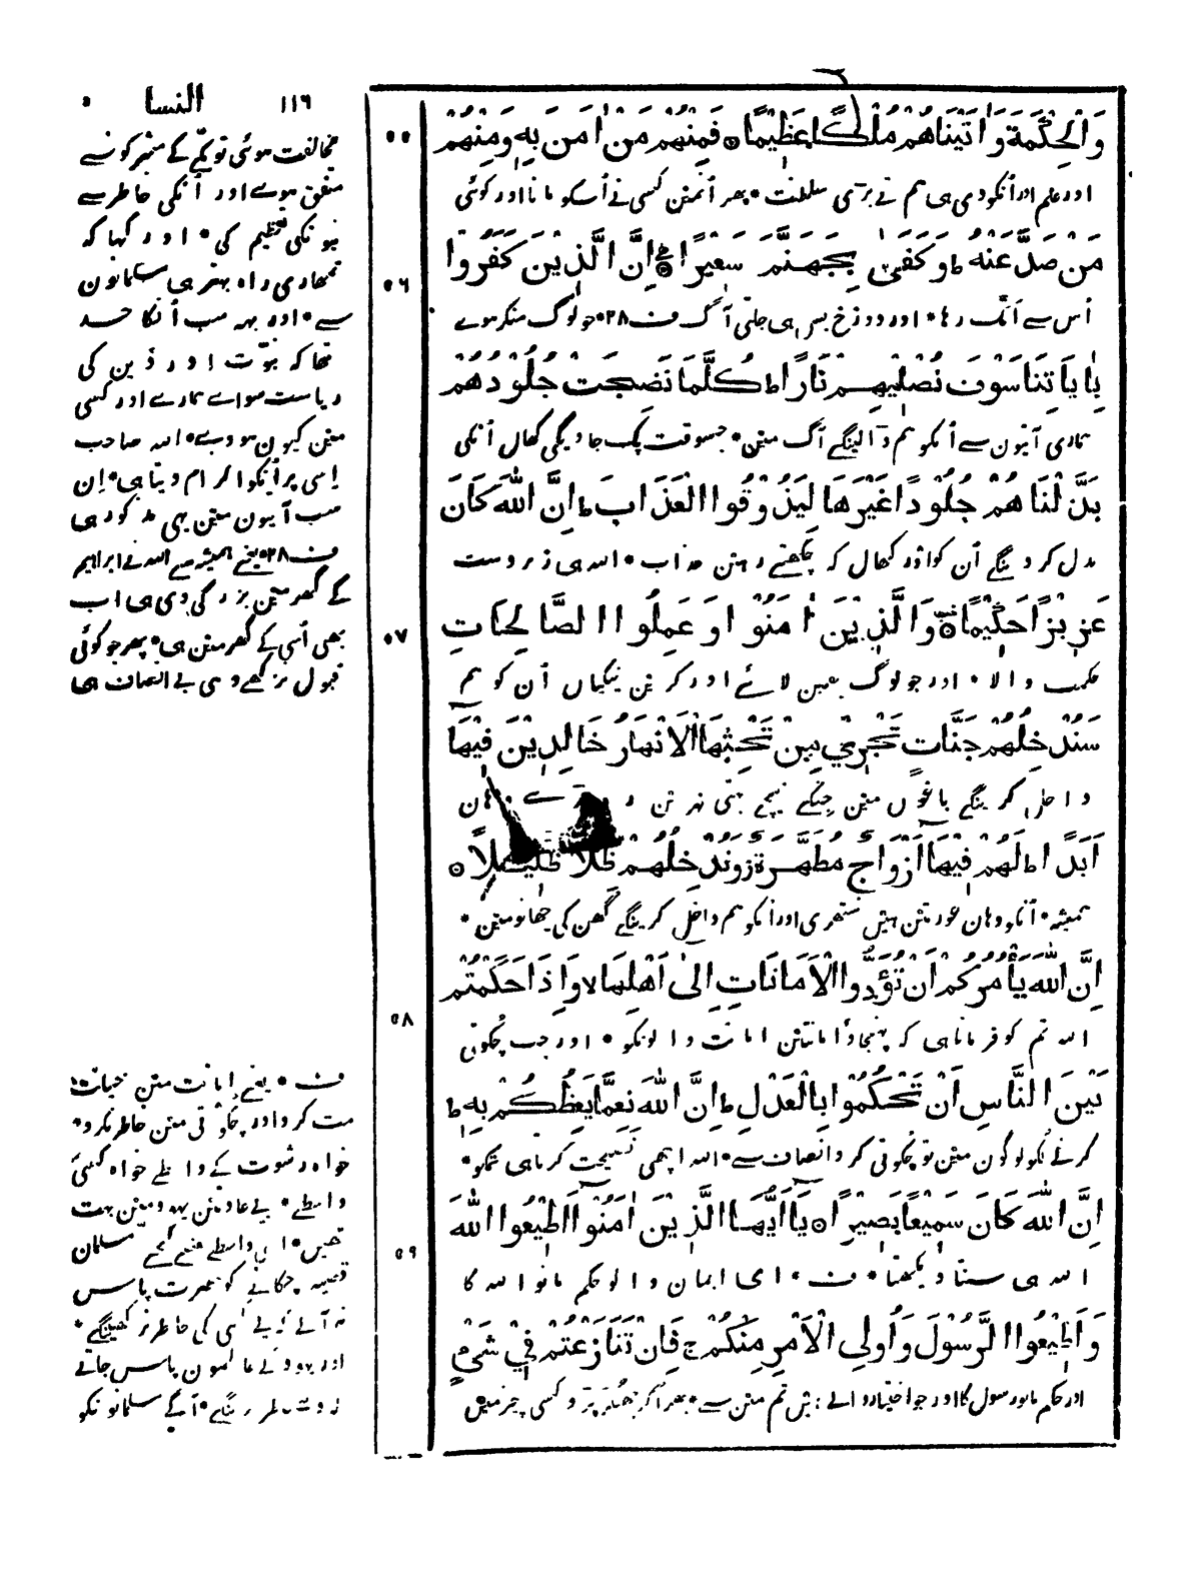 النسا ١١٦
وَالْحِكْمَةَ وَاٰتَيْنَاهُمْ مُلْكًا عَظِيْمًا ۝ فَمِنْهُمْ مَنْ اٰمَنَ بِهٖ وَمِنْهُمْ ٥٥
اور علم اور اُنکو دی ہی ہم نے بڑی سلطنت • پھر اُنمین کسی نے اُسکو مانا اور کوئی
مَنْ صَدَّ عَنْهُ ط وَكَفٰى بِجَهَنَّمَ سَعِيْرًا ۝ اِنَّ الَّذِيْنَ كَفَرُوا ٥٦
اُس سے اٹک رہا • اور دوزخ بس ہی جلتی آگ ف ٢٨ • جو لوگ منکر ہوے
بِاٰيَاتِنَا سَوْفَ نُصْلِيْهِمْ نَارًا ط كُلَّمَا نَضِجَتْ جُلُوْدُهُمْ
ہماری آیتون سے اُنکو ہم ڈالینگے آگ مین • جسوقت پک جاویگی کھال اُنکی
بَدَّلْنَاهُمْ جُلُوْدًا غَيْرَهَا لِيَذُوْقُوا الْعَذَابَ ط اِنَّ اللهَ كَانَ
بدل کر دینگے اُن کو اور کھال کہ چکھتے رہین عذاب • اللہ ہی زبردست
عَزِيْزًا حَكِيْمًا ۝ وَالَّذِيْنَ اٰمَنُوْا وَعَمِلُوا الصَّالِحَاتِ ٥٧
حکمت والا • اور جو لوگ یقین لائے اور کرین نیکیان اُن کو ہم
سَنُدْخِلُهُمْ جَنَّاتٍ تَجْرِيْ مِنْ تَحْتِهَا الْاَنْهَارُ خَالِدِيْنَ فِيْهَا
داخل کرینگے باغون مین جنکے نیچے بہتی نہرین
اَبَدًا ط لَهُمْ فِيْهَا اَزْوَاجٌ مُطَهَّرَةٌ ز وَنُدْخِلُهُمْ ظِلًّا ظَلِيْلًا ۝
ہمیشہ • اُنکو وہان عورتین ہین ستھری اور اُنکو ہم داخل کرینگے گھن کی چھانو مین •
اِنَّ اللهَ يَأْمُرُكُمْ اَنْ تُؤَدُّوا الْاَمَانَاتِ اِلٰى اَهْلِهَا لا وَاِذَا حَكَمْتُمْ ٥٨
اللہ تم کو فرماتا ہی کہ پہنچاؤ امانتین امانت والونکو • اور جب چکوتی
بَيْنَ النَّاسِ اَنْ تَحْكُمُوْا بِالْعَدْلِ ط اِنَّ اللهَ نِعِمَّا يَعِظُكُمْ بِهٖ ط
کرنے لگو لوگون مین تو چکوتی کرو انصاف سے • اللہ اچھی نصیحت کرتا ہی تمکو •
اِنَّ اللهَ كَانَ سَمِيْعًا بَصِيْرًا ۝ يَا اَيُّهَا الَّذِيْنَ اٰمَنُوْا اَطِيْعُوا اللهَ ٥٩
اللہ ہی سنتا دیکھتا • ف • ای ایمان والو حکم مانو اللہ کا
وَاَطِيْعُوا الرَّسُوْلَ وَاُولِي الْاَمْرِ مِنْكُمْ ج فَاِنْ تَنَازَعْتُمْ فِيْ شَيْءٍ
اور حکم مانو رسول کا اور جو اختیار والے ہین تم مین سے • پھر اگر جھگڑ پڑو کسی چیز مین
مخالفت ہوئی تو مکّے کے مشرکون سے
متفق ہوے اور اُنکی خاطر سے
بتونکی تعظیم کی • اور کہا کہ
تمھاری راہ بہتر ہی مسلمانون
سے • اور یہہ سب اُنکا حسد
تھا کہ نبوّت اور دین کی
ریاست سواے ہمارے اور کسی
مین کیون ہووے • اللہ صاحب
اِسی پر اُنکو الزام دیتا ہی • اِن
سب آیتون مین یہی مذکور ہی
ف ٢٨ • یعنے ہمیشہ سے اللہ نے ابراہیم
کے گھر مین بزرگی دی ہی اب
بھی اُسی کے گھر مین ہی • پھر جو کوئی
قبول نرکھے وہی بے انصاف ہی
ف • یعنے امانت مین خیانت
مت کرو اور چکوتی مین خاطر نکرو •
خواہ رشوت کے واسطے خواہ کسی
واسطے • یے عادتین یہود مین بہت
تھین • اسی واسطے بعضے مسلمان
قضیہ چکانے کو حضرت پاس
نہ آتے کہ یے کسی کی خاطر نرکھینگے •
اور یہود کے عالمون پاس جاتے
کہ وے خاطر رکھینگے • آگے مسلمانونکو